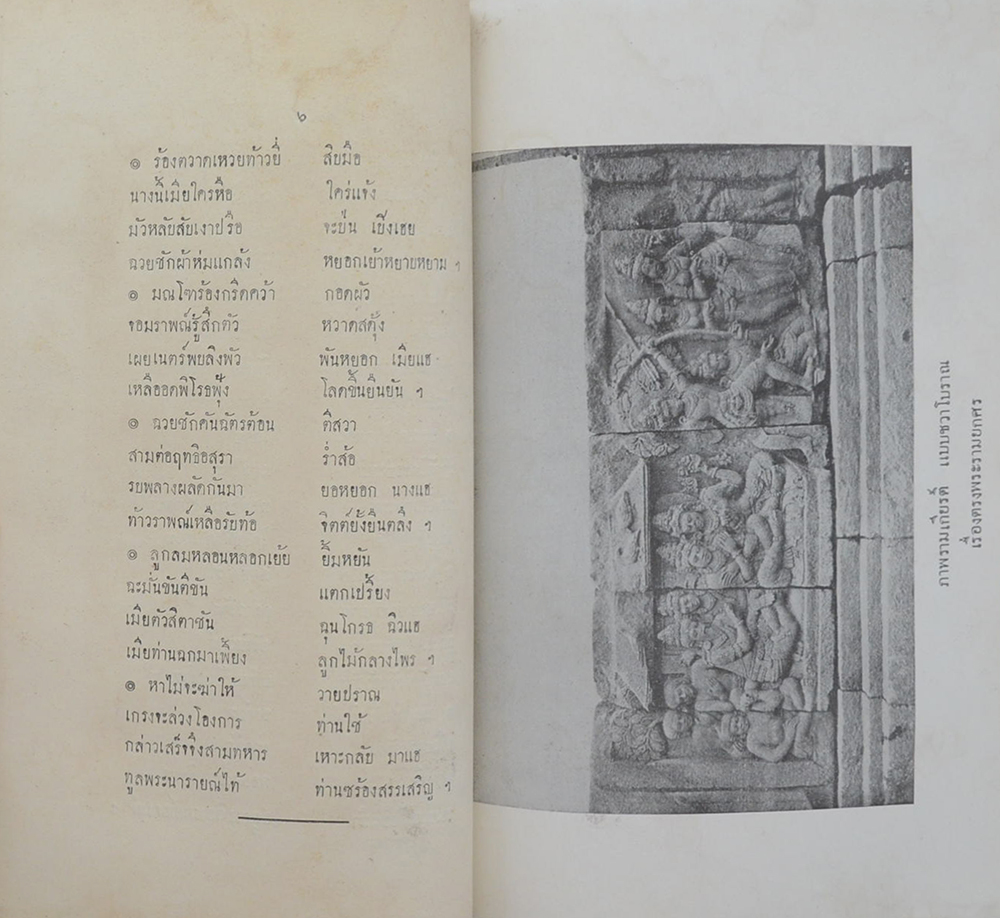 ๖
๏ ร้องตวาดเหวยท้าวยี่ สิบมือ
นางนี้เมียใครหือ ใคร่แจ้ง
มัวหลับสัยเงาปรือ จะยืน เยิ่งเฮย
ฉวยชักผ้าห่มแกล้ง หยอกเย้าหยาบหยาม ฯ
๏ มณโฑร้องกรีดคว้า กอดผัว
จอมราพณ์รู้สึกตัว หวาดสดุ้ง
เผยเนตร์พบลิงพัว พันหยอก เมียแฮ
เหลืออดพิโรธฟุ้ง โลดขึ้นยืนยัน ฯ
๏ ฉวยชักคันฉัตรต้อน ตีสวา
สามต่อฤทธิอสุรา ร่ำส้อ
รบพลางผลัดกันมา ยอหยอก นางแฮ
ท้าวราพณ์เหลือรับท้อ จิตต์ยั้งยืนตลึง ฯ
๏ ลูกลมหลอนหลอกเย้ย ยิ้มหยัน
ฉะมั่นขันตีขัน แตกเปรี้ยง
เมียตัวสิตาชัน ฉุนโกรธ ฉิวแฮ
เมียท่านฉกมาเพี้ยง ลูกไม้กลางไพร ฯ
๏ หาไม่จะฆ่าให้ วายปราณ
เกรงจะล่วงโองการ ท่านใช้
กล่าวเสร็จจึ่งสามทหาร เหาะกลับ มาแฮ
ทูลพระนารายณ์ไท้ ท่านซร้องสรรเสริญ ฯ
ภาพรามเกียรติ์ แบบชวาโบราณ
เรื่องตรงพระรามยกศร